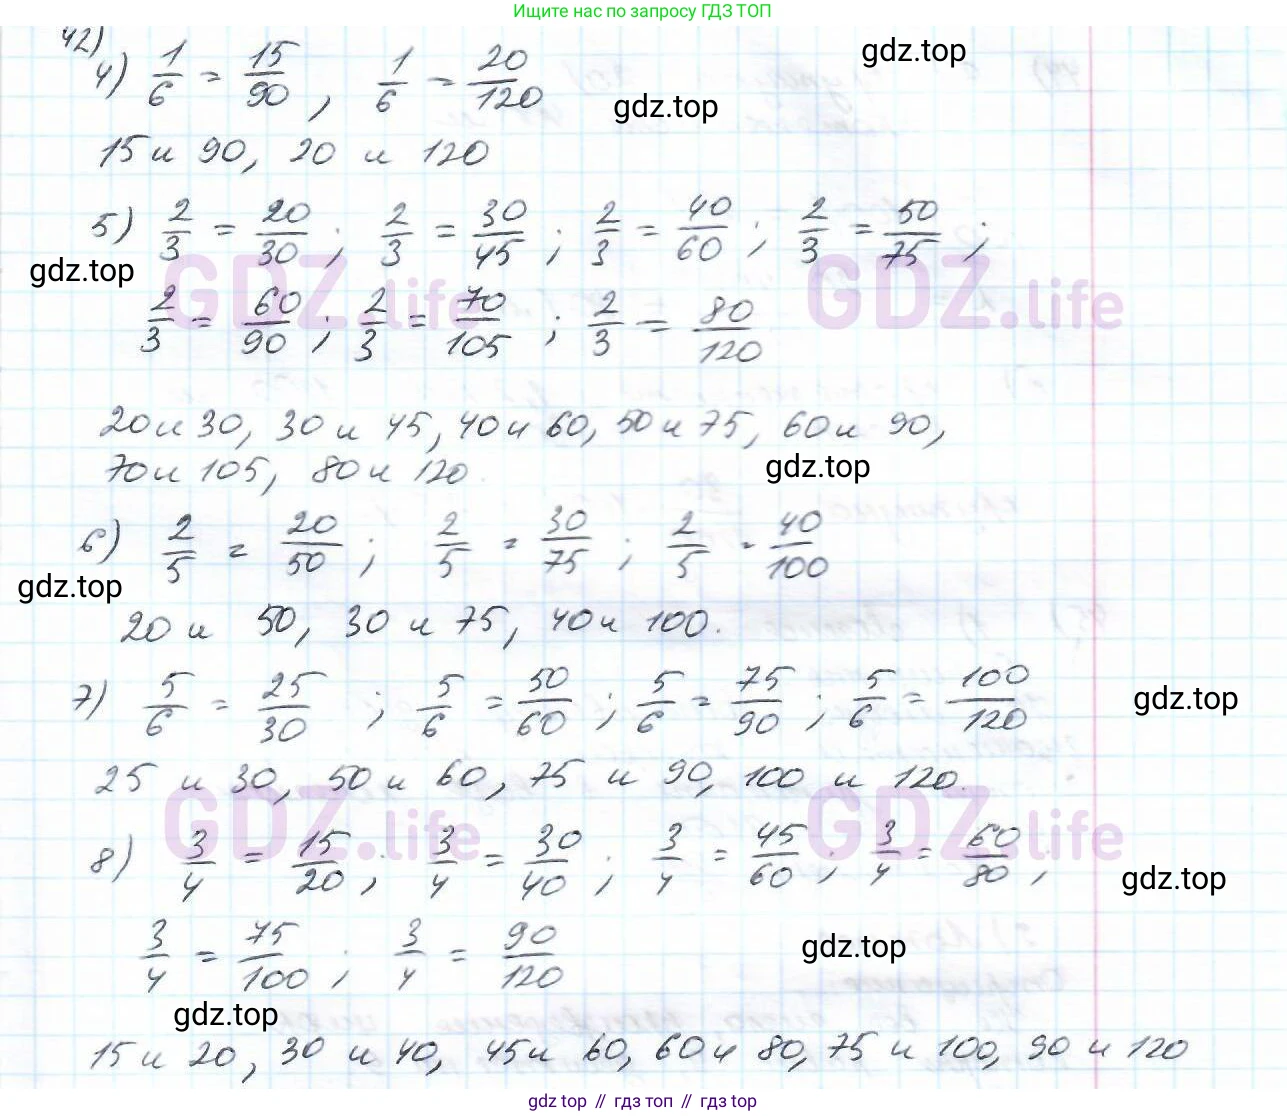 Ищите нас по запросу ГДЗ ТОП
42)
4) 1/6 = 15/90, 1/6 = 20/120
gdz.top
gdz.top
15 и 90, 20 и 120
5) 2/3 = 20/30; 2/3 = 30/45; 2/3 = 40/60; 2/3 = 50/75;
gdz.top
GDZ.life
GDZ.life
2/3 = 60/90; 2/3 = 70/105; 2/3 = 80/120
20 и 30, 30 и 45, 40 и 60, 50 и 75, 60 и 90,
70 и 105, 80 и 120.
gdz.top
6) 2/5 = 20/50; 2/5 = 30/75; 2/5 = 40/100
gdz.top
20 и 50, 30 и 75, 40 и 100.
7) 5/6 = 25/30; 5/6 = 50/60; 5/6 = 75/90; 5/6 = 100/120
gdz.top
25 и 30, 50 и 60, 75 и 90, 100 и 120.
GDZ.life
GDZ.life
8) 3/4 = 15/20; 3/4 = 30/40; 3/4 = 45/60; 3/4 = 60/80;
gdz.top
3/4 = 75/100; 3/4 = 90/120
gdz.top
gdz.top
15 и 20, 30 и 40, 45 и 60, 60 и 80, 75 и 100, 90 и 120
gdz top // гдз топ // гдз top